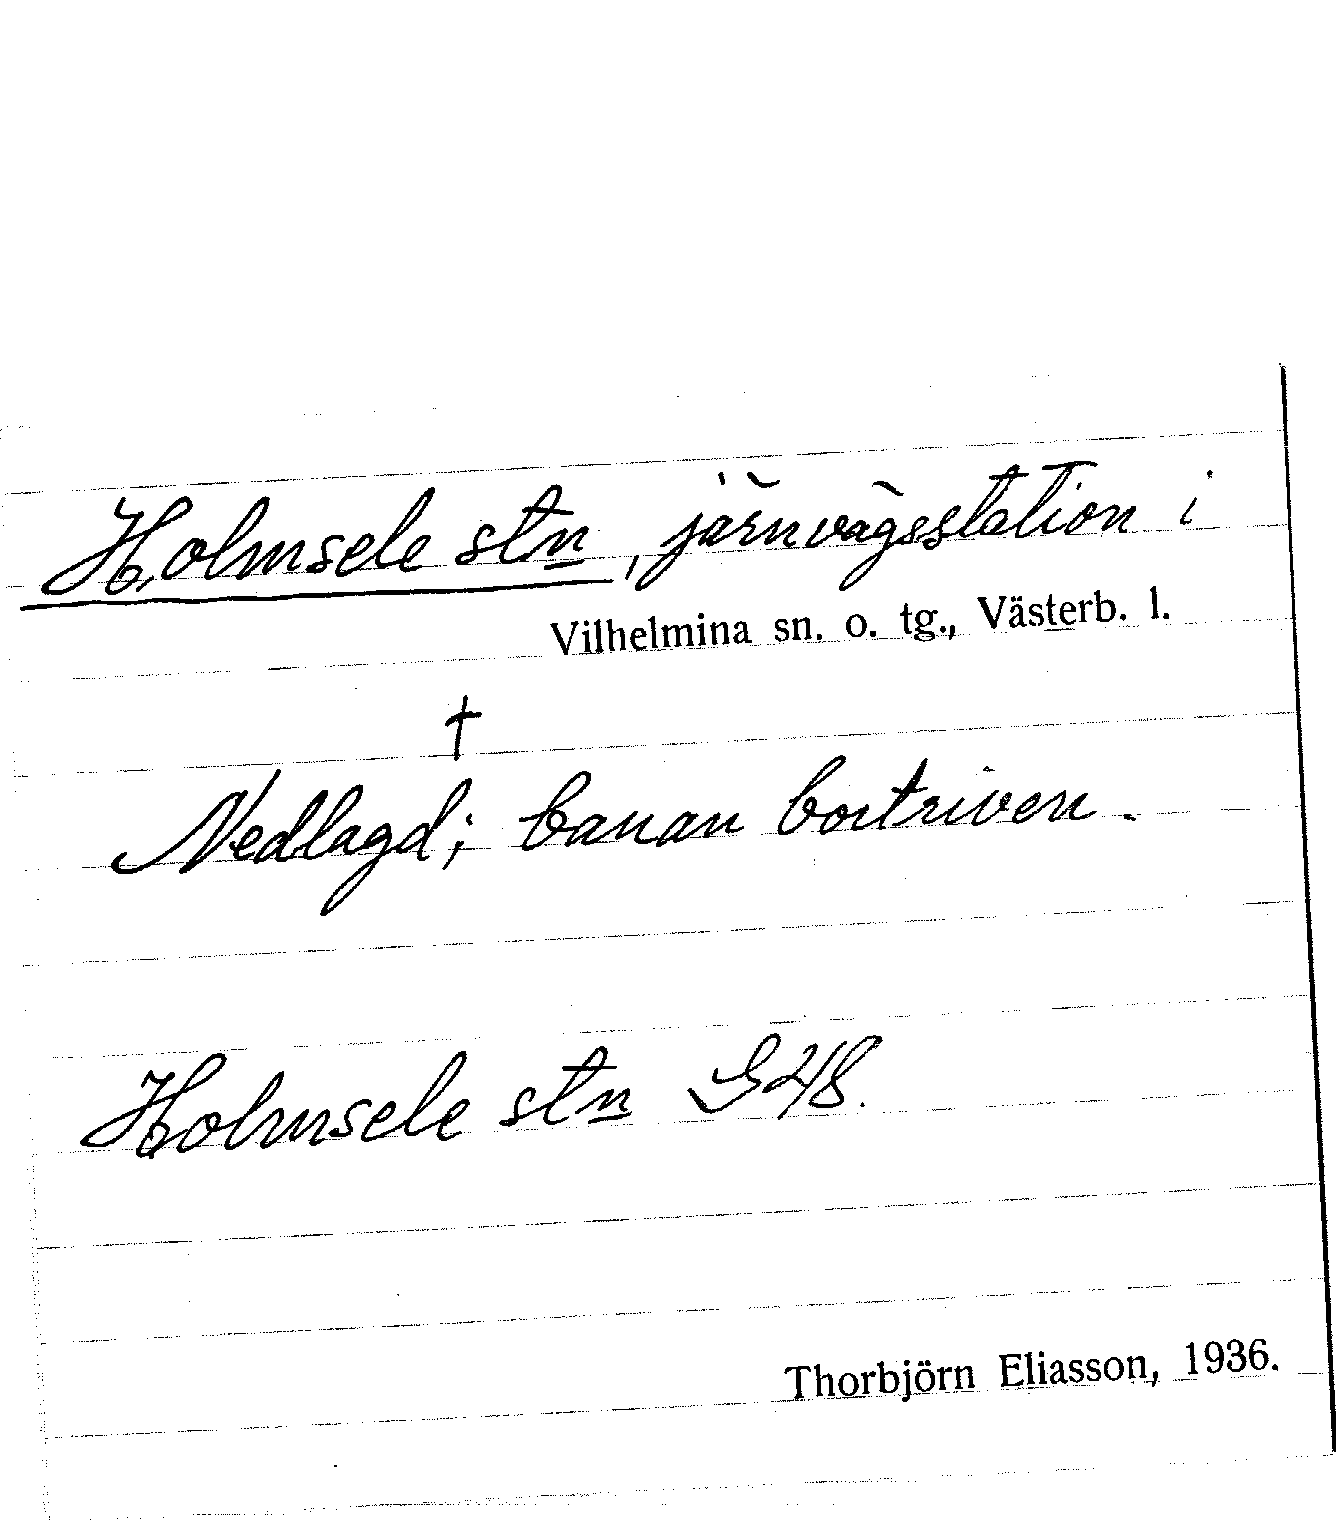 Holmsele stn, järnvägsstation i
Vilhelmina sn. o. tg., Västerb. l.
†
Nedlagd; banan bortriven.
Holmsele stn G48.
Thorbjörn Eliasson, 1936.